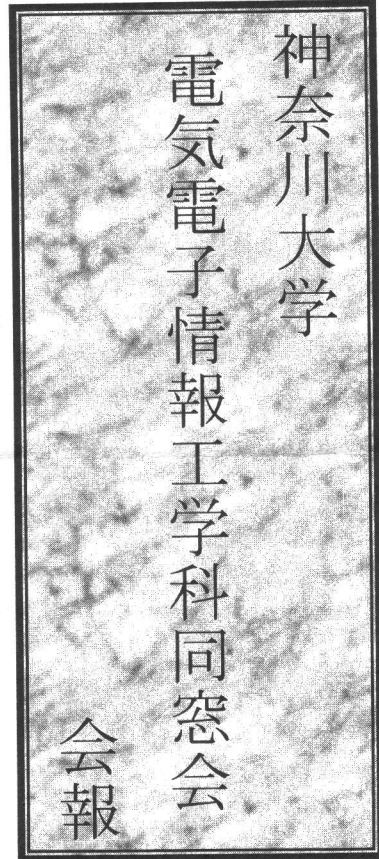 神奈川大学
電気電子情報工学科同窓会
会報